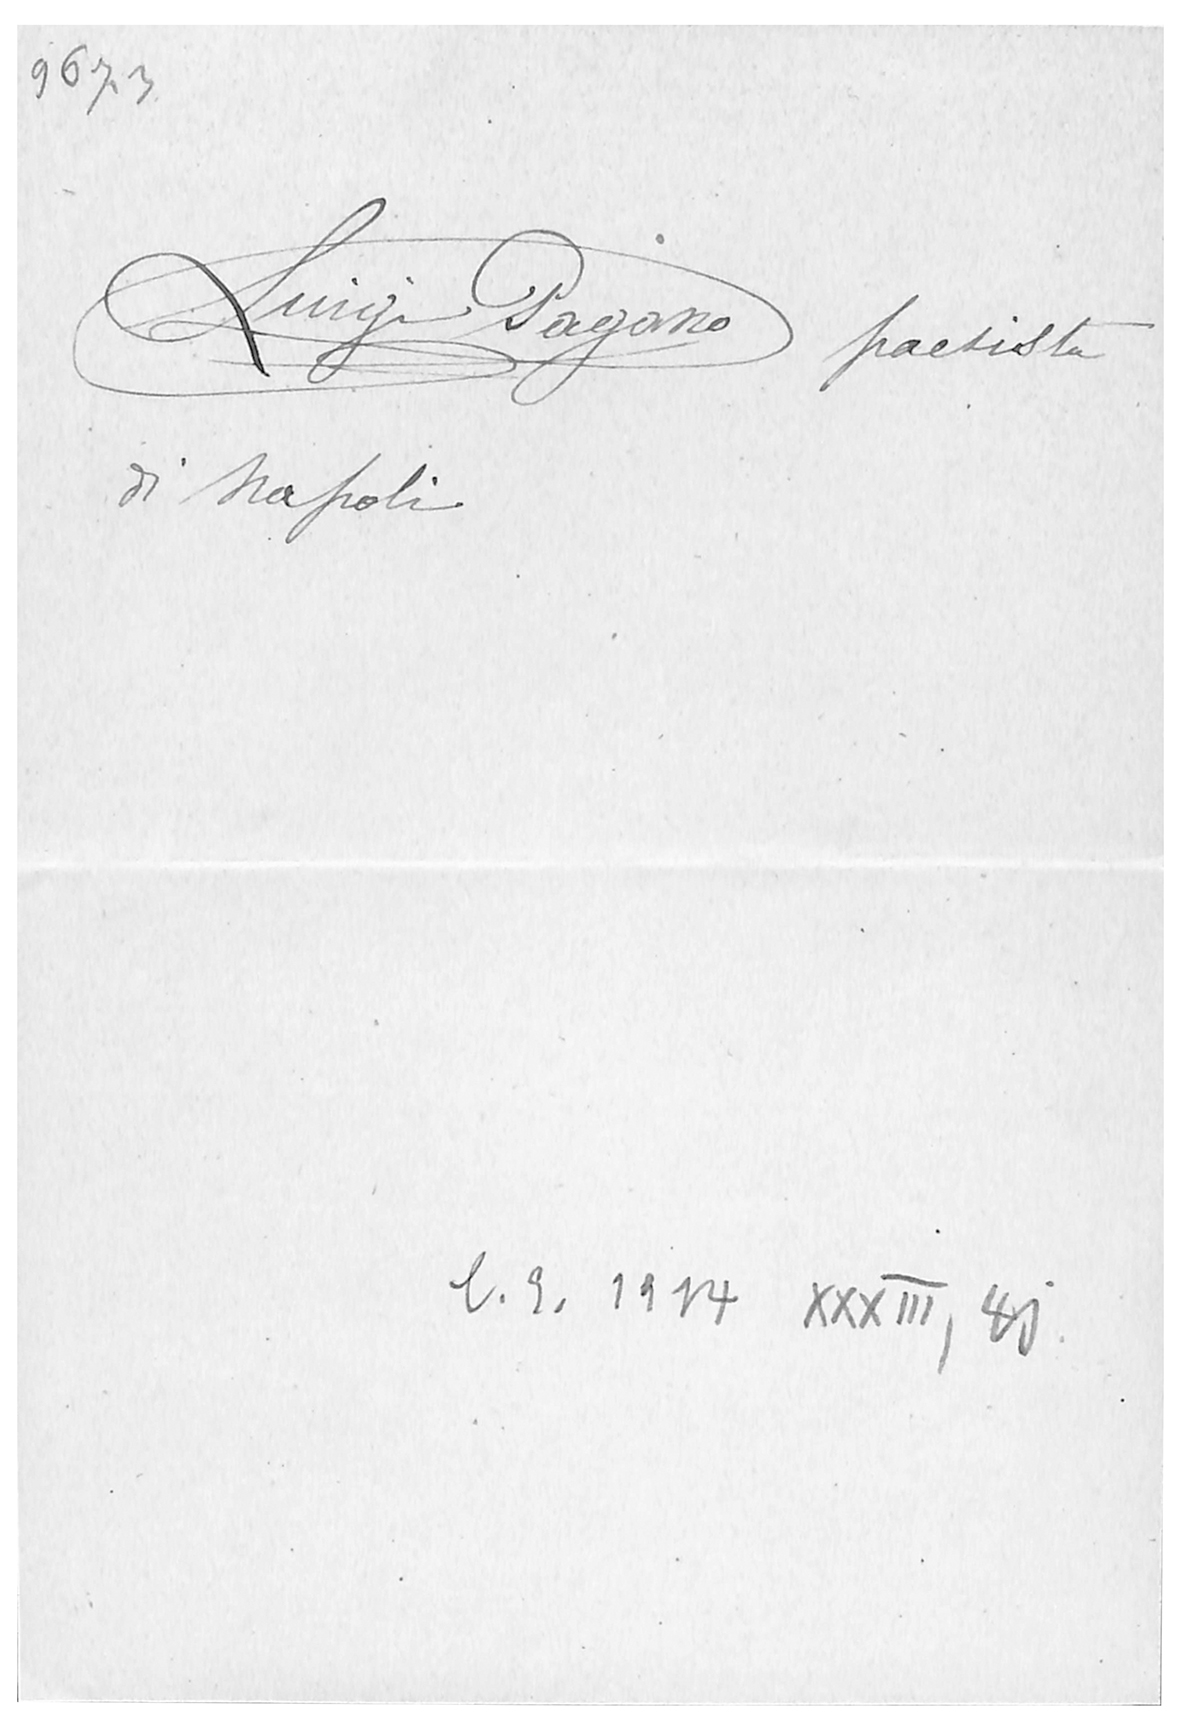 9673
Luigi Pagano paesista
di Napoli
1914 XXXIII,